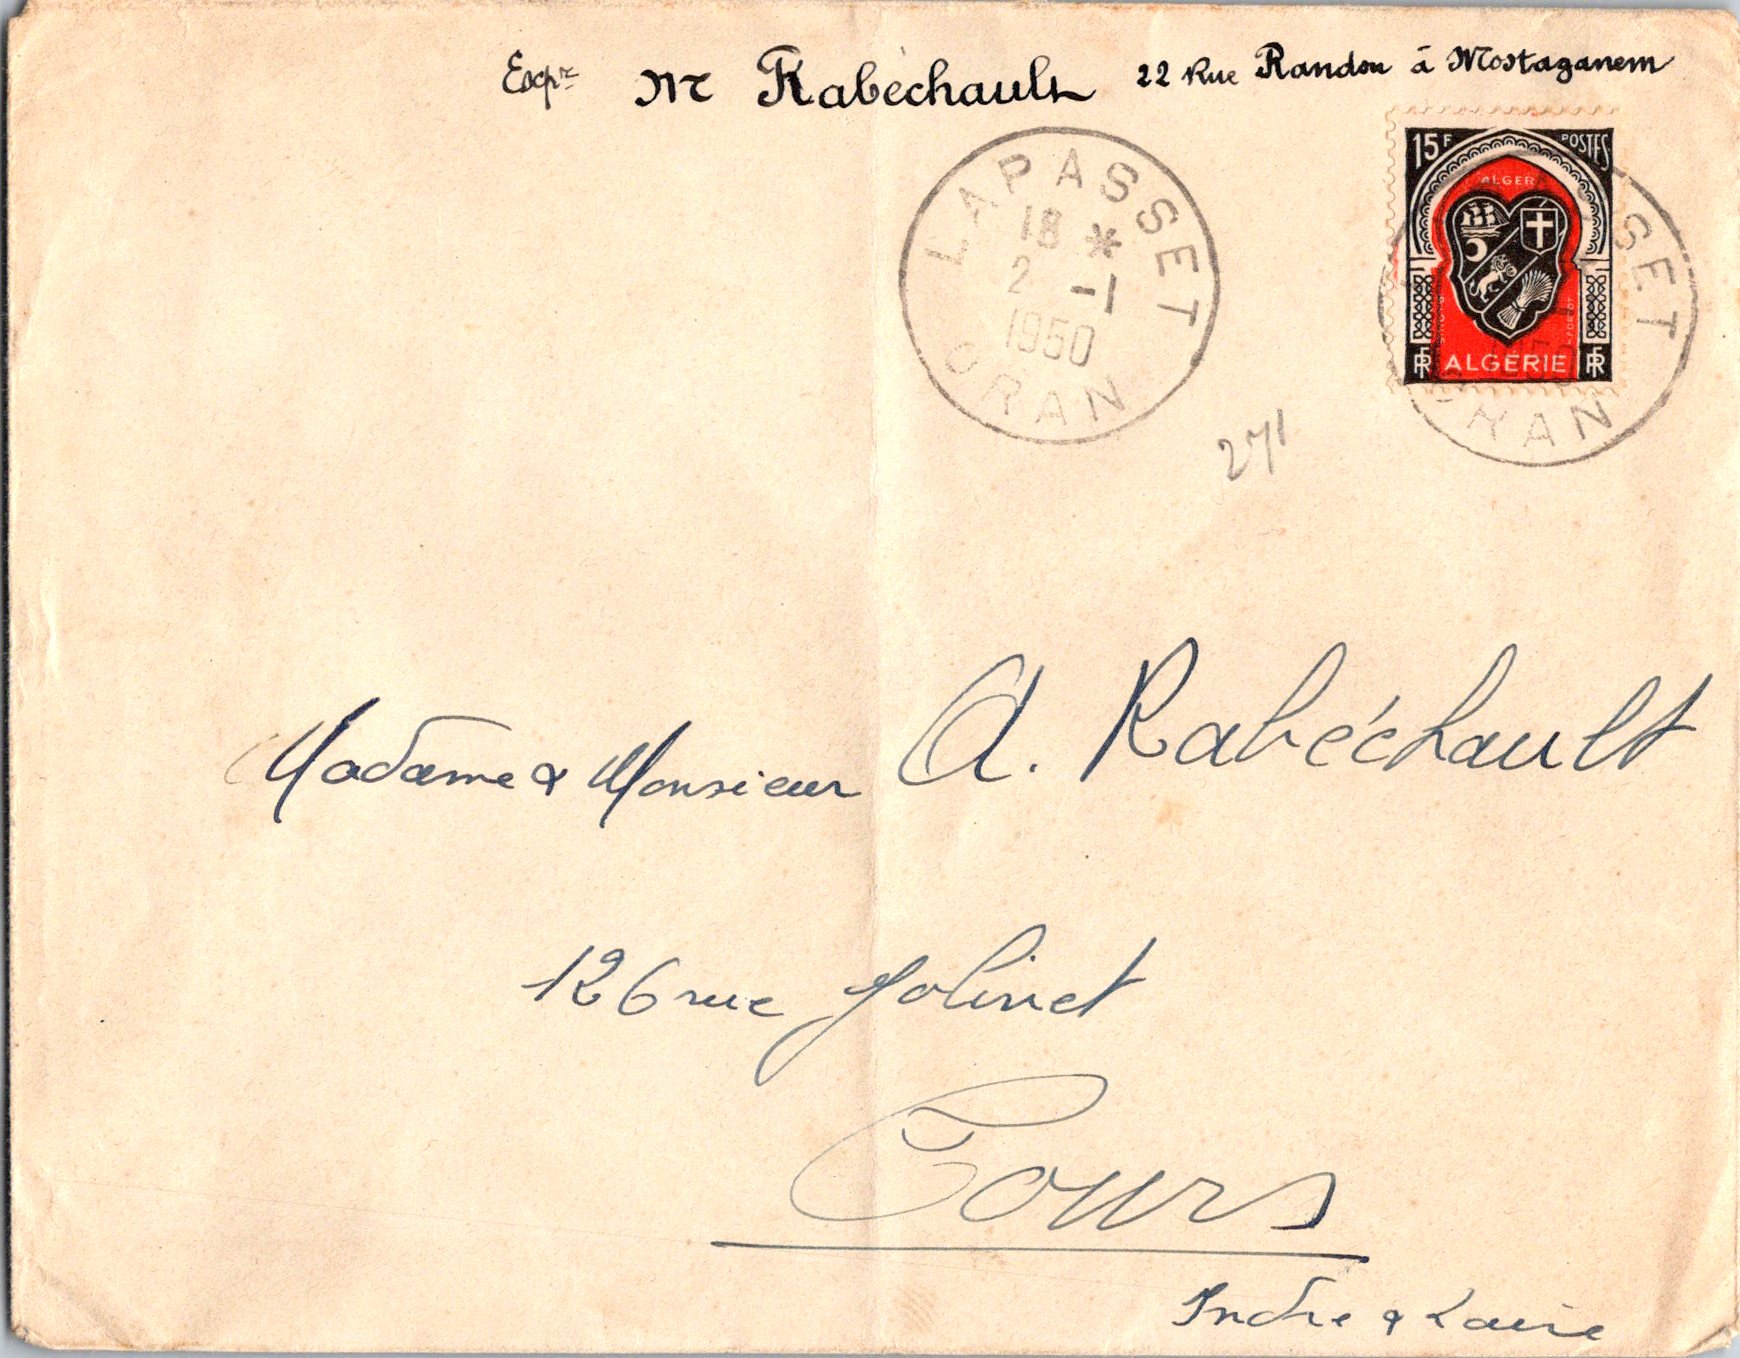 Expr Mr Rabéchault 22 Rue Randon à Mostaganem
LAPASSET
18 *
2 -1
1950
ORAN
15F POSTES
ALGER
RF ALGERIE RF
SET
ORAN
271
Madame & Monsieur A. Rabéchault
126 rue Jolivet
Tours
Indre & Loire